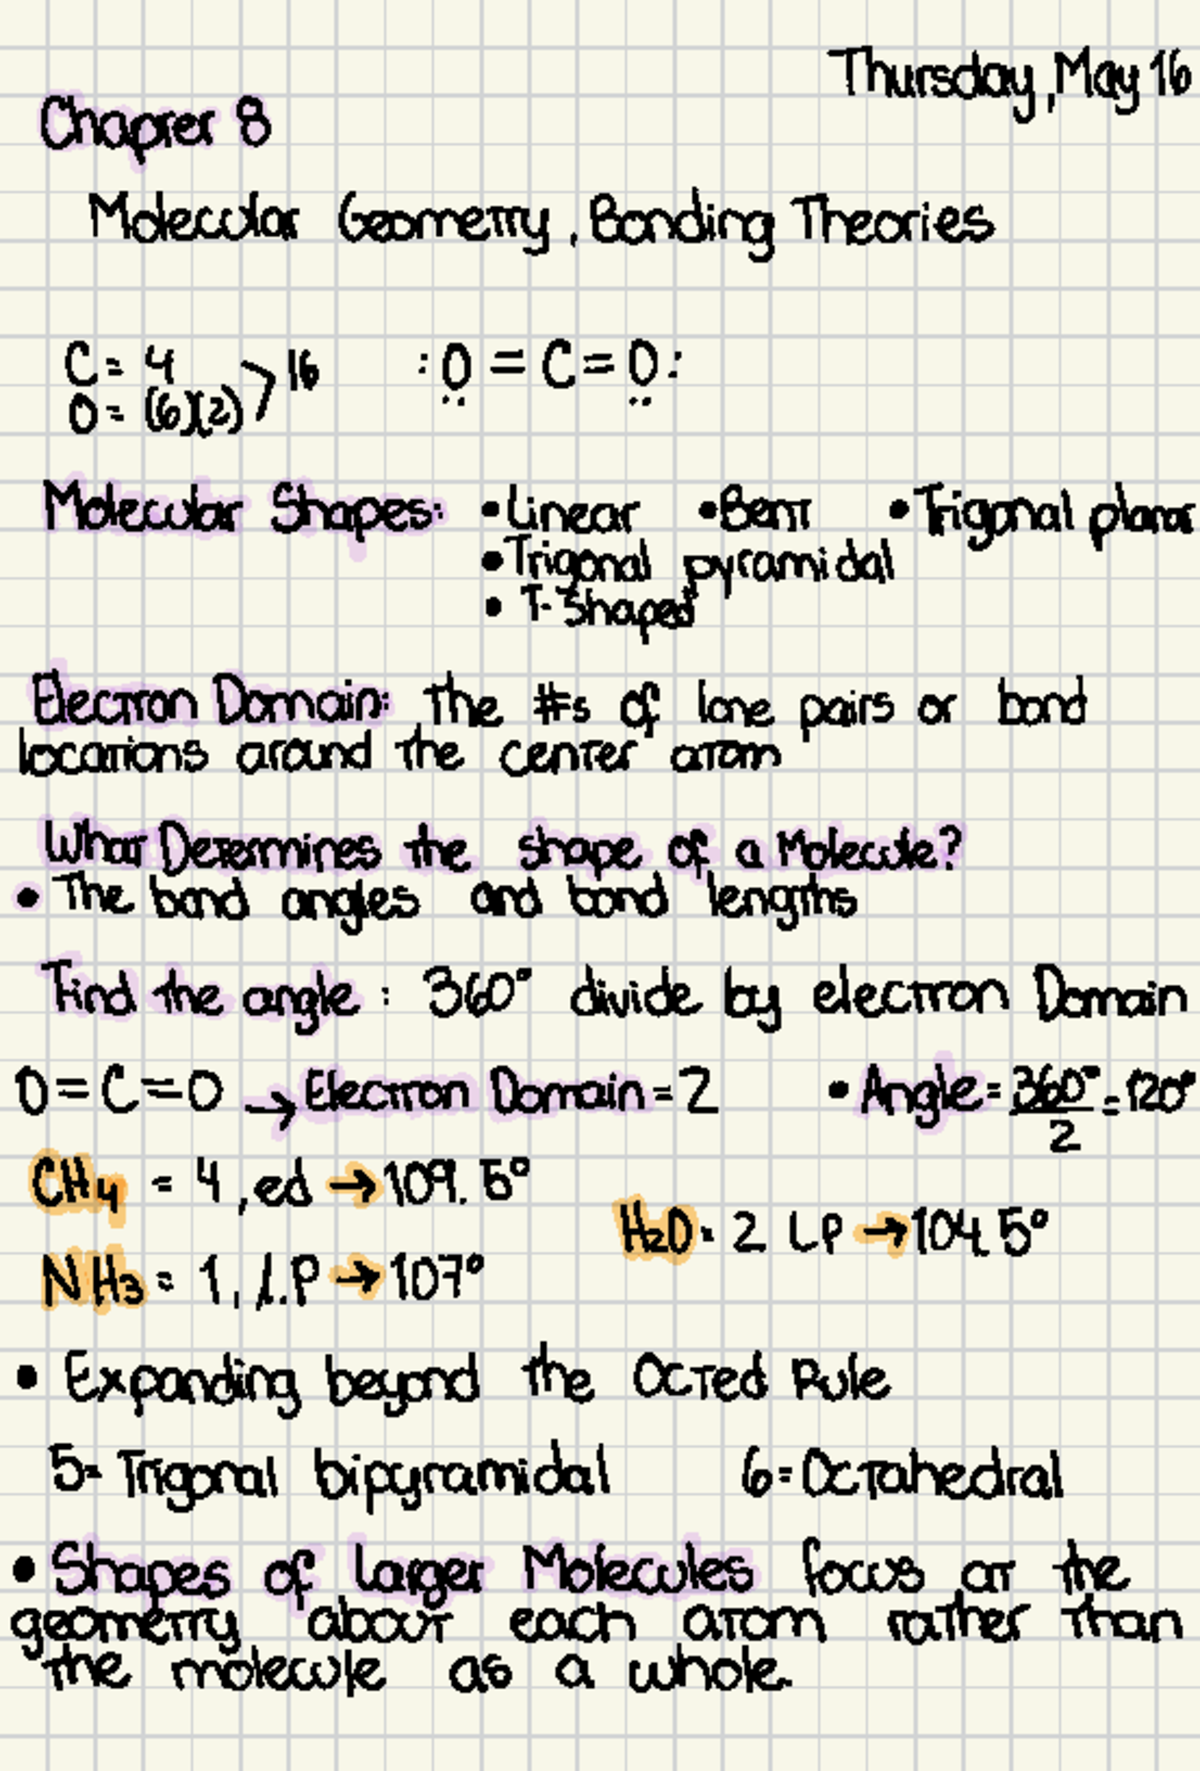 Thursday, May 16
Chapter 8
Molecular Geometry, Bonding Theories
C = 4
O = (6)(2) > 16
:O = C = O:
Molecular Shapes: • Linear • Bent • Trigonal planar
• Trigonal pyramidal
• T-Shaped
Electron Domain: the #s of lone pairs or bond
locations around the center atom
What Determines the shape of a Molecule?
• The bond angles and bond lengths
Find the angle: 360° divide by electron Domain
O=C=O → Electron Domain = 2 • Angle = 360°/2 = 120°
CH4 = 4, ed → 109.5°
H2O = 2 LP → 104.5°
NH3 = 1, L.P → 107°
• Expanding beyond the Octed Rule
5= Trigonal bipyramidal 6= Octahedral
• Shapes of larger Molecules focus at the
geometry about each atom rather than
the molecule as a whole.